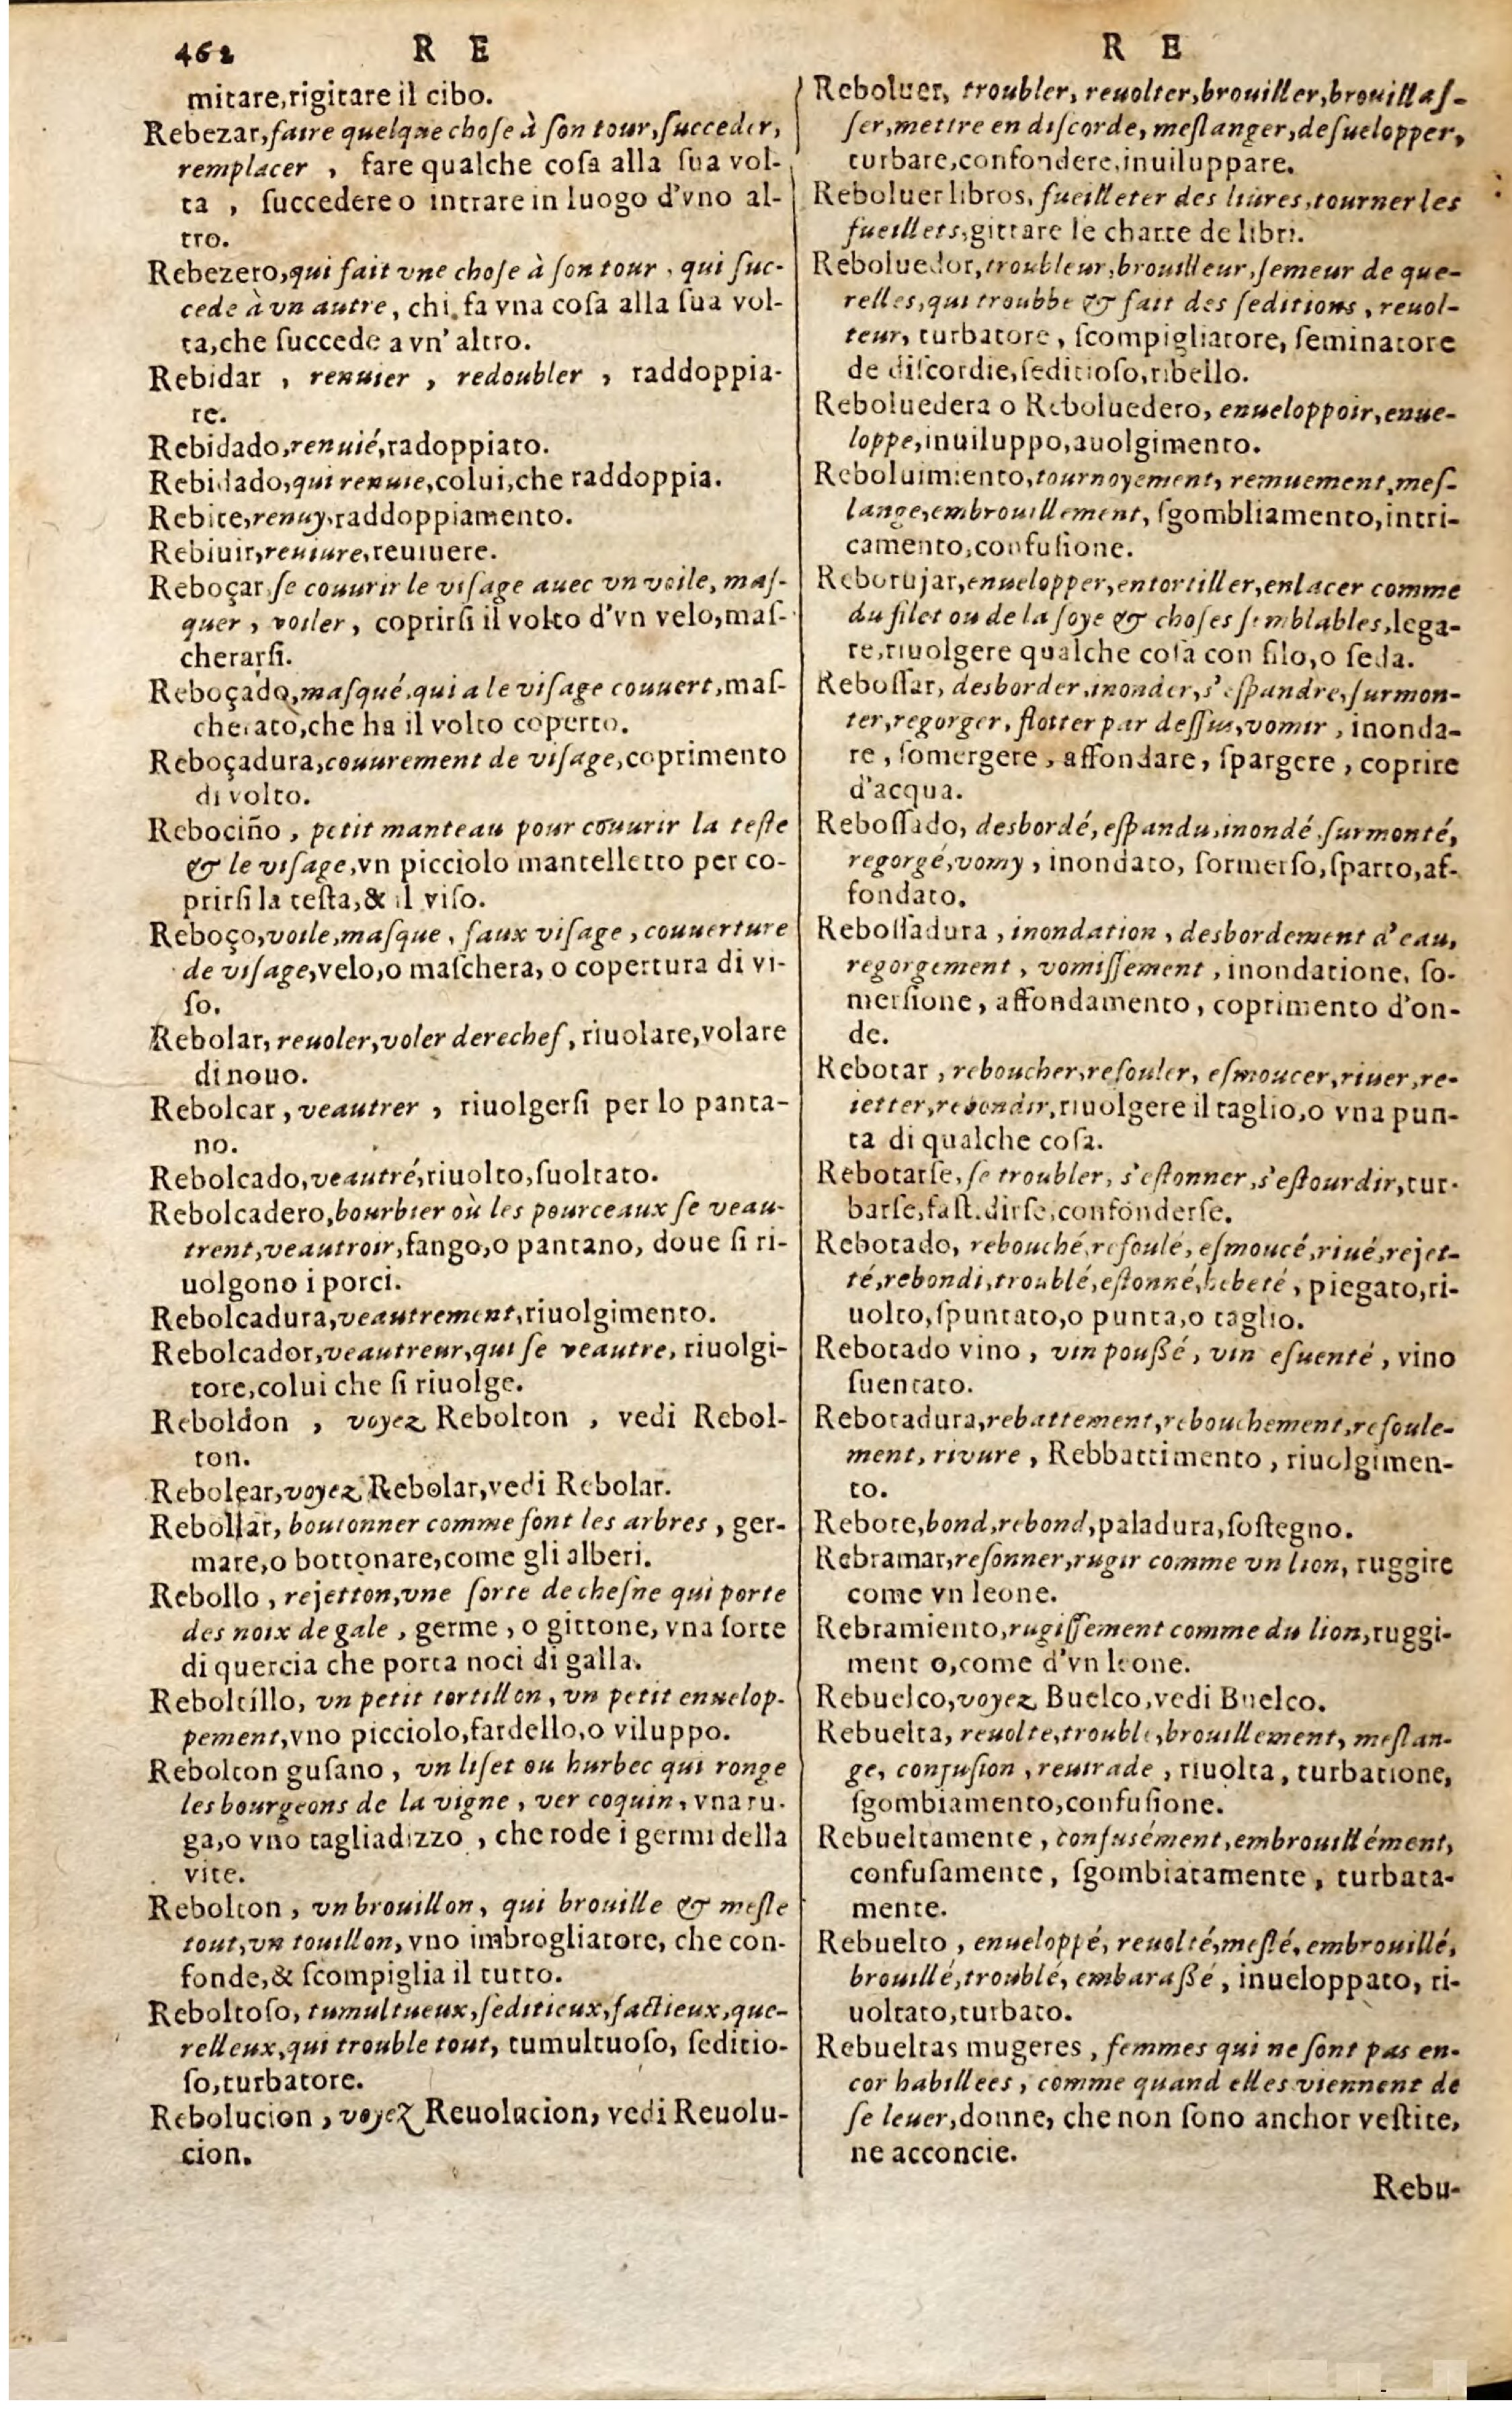 462 R E
mitare,rigitare il cibo.
Rebezar,faire quelque choſe à ſon tour,ſucceder,
remplacer , fare qualche coſa alla ſua vol-
ta , ſuccedere o intrare in luogo d'vno al-
tro.
Rebezero,qui fait vne choſe à ſon tour , qui ſuc-
cede à vn autre, chi fa vna coſa alla ſua vol-
ta,che ſuccede a vn' altro.
Rebidar , renuier , redoubler , raddoppia-
re.
Rebidado,renuié,radoppiato.
Rebidado,qui renuie,colui,che raddoppia.
Rebite,renuy,raddoppiamento.
Rebiuir,reuiure,reuiuere.
Reboçar,ſe couurir le viſage auec vn voile, maſ-
quer , voiler , coprirſi il volto d'vn velo,maſ-
cherarſi.
Reboçado,maſqué,qui a le viſage couuert,maſ-
cherato,che ha il volto coperto.
Reboçadura,couurement de viſage,coprimento
di volto.
Rebociño , petit manteau pour couurir la teſte
& le viſage,vn picciolo mantelletto per co-
prirſi la teſta,& il viſo.
Reboço,voile,maſque , faux viſage , couuerture
de viſage,velo,o maſchera, o copertura di vi-
ſo.
Rebolar, reuoler,voler derechef, riuolare,volare
di nouo.
Rebolcar , veautrer , riuolgerſi per lo panta-
no.
Rebolcado,veautré,riuolto,ſuoltato.
Rebolcadero,bourbier où les pourceaux ſe veau-
trent,veautroir,fango,o pantano, doue ſi ri-
uolgono i porci.
Rebolcadura,veautrement,riuolgimento.
Rebolcador,veautreur,qui ſe veautre, riuolgi-
tore,colui che ſi riuolge.
Reboldon , voyez Rebolton , vedi Rebol-
ton.
Rebolear,voyez Rebolar,vedi Rebolar.
Rebollar, boutonner comme font les arbres , ger-
mare,o bottonare,come gli alberi.
Rebollo , rejetton,vne ſorte de cheſne qui porte
des noix de gale , germe , o gittone, vna ſorte
di quercia che porta noci di galla.
Reboltillo, vn petit tortillon , vn petit enuelop-
pement,vno picciolo,fardello,o viluppo.
Rebolton guſano , vn liſet ou hurbec qui ronge
les bourgeons de la vigne , ver coquin, vna ru-
ga,o vno tagliadizzo , che rode i germi della
vite.
Rebolton , vn brouillon, qui brouille & meſle
tout,vn touillon, vno imbrogliatore, che con-
fonde,& ſcompiglia il tutto.
Reboltoſo, tumultueux,ſeditieux,factieux,que-
relleux,qui trouble tout, tumultuoſo, ſeditio-
ſo,turbatore.
Rebolucion , voyez Reuolucion, vedi Reuolu-
cion.
R E
Reboluer, troubler, reuolter,brouiller,brouillaſ-
ſer,mettre en diſcorde, meſlanger,deſuelopper,
turbare,confondere,inuiluppare.
Reboluer libros, fueilleter des liures,tourner les
fueillets,gittare le charte de libri.
Reboluedor,troubleur,brouilleur,ſemeur de que-
relles,qui troubbe & fait des ſeditions , reuol-
teur, turbatore , ſcompigliatore, ſeminatore
de diſcordie,ſeditioſo,ribello.
Reboluedera o Reboluedero, enueloppoir,enue-
loppe,inuiluppo,auolgimento.
Reboluimiento,tournoyement, remuement,meſ-
lange,embrouillement, ſgombliamento,intri-
camento,confuſione.
Reborujar,enuelopper,entortiller,enlacer comme
du filet ou de la ſoye & choſes ſemblables,lega-
re,riuolgere qualche coſa con filo,o ſeda.
Reboſſar, desborder,inonder,s'eſpandre,ſurmon-
ter,regorger, flotter par deſſus,vomir , inonda-
re , ſomergere , affondare, ſpargere , coprire
d'acqua.
Reboſſado, desbordé, eſpandu,inondé,ſurmonté,
regorgé,vomy , inondato, ſormerſo,ſparto,af-
fondato.
Reboſſadura , inondation , desbordement d'eau,
regorgement , vomiſſement , inondatione, ſo-
merſione , affondamento , coprimento d'on-
de.
Rebotar , reboucher,refouler, eſmoucer,riuer,re-
ietter,rebondir,riuolgere il taglio,o vna pun-
ta di qualche coſa.
Rebotarſe, ſe troubler, s'eſtonner,s'eſtourdir,tur-
barſe,faſtidirſe,confonderſe.
Rebotado, rebouché,refoulé, eſmoucé,riué,rejet-
té,rebondi,troublé,eſtonné,hebeté , piegato,ri-
uolto,ſpuntato,o punta,o taglio.
Rebotado vino , vin pouſſé, vin eſuenté , vino
ſuentato.
Rebotadura,rebattement,rebouchement,refoule-
ment, rivure , Rebbattimento , riuolgimen-
to.
Rebote,bond,rebond,paladura,ſoſtegno.
Rebramar,reſonner,rugir comme vn lion, ruggire
come vn leone.
Rebramiento,rugiſſement comme du lion,ruggi-
ment o,come d'vn leone.
Rebuelco,voyez Buelco,vedi Buelco.
Rebuelta, reuolte,trouble,brouillement, meſlan-
ge, confuſion , reuirade , riuolta, turbatione,
ſgombiamento,confuſione.
Rebueltamente , confusément,embrouillément,
confuſamente , ſgombiatamente , turbata-
mente.
Rebuelto , enueloppé, reuolté,meſlé, embrouillé,
brouillé,troublé, embaraſſé , inueloppato, ri-
uoltato,turbato.
Rebueltas mugeres , femmes qui ne ſont pas en-
cor habillees , comme quand elles viennent de
ſe leuer,donne, che non ſono anchor veſtite,
ne acconcie.
Rebu-